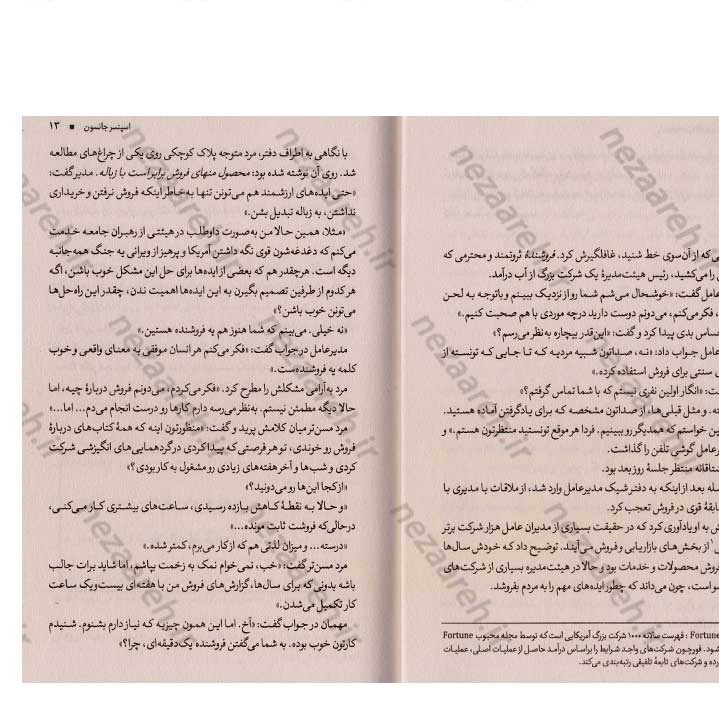 ی که از آن‌سوی خط شنید، غافلگیرش کرد. فروشندهٔ ثروتمند و محترمی که
ی را می‌کشید، رئیس هیئت‌مدیرهٔ یک شرکت بزرگ از آب درآمد.
عامل گفت: «خوشحال می‌شم شما رو از نزدیک ببینم و باتوجه به لحن
، فکر می‌کنم، می‌دونم دوست دارید درچه موردی با هم صحبت کنیم.»
ساس بدی پیدا کرد و گفت: «این‌قدر بیچاره به‌نظر می‌رسم؟»
عامل جواب داد: «نه، صداتون شبیه مردیه که تا جایی که تونسته از
ی سنتی برای فروش استفاده کرده.»
ت: «انگار اولین نفری نیستم که با شما تماس گرفتم؟»
ه. و مثل قبلی‌ها، از صداتون مشخصه که برای یادگرفتن آماده هستید.
ین خواستم که همدیگر رو ببینیم. فردا هر موقع تونستید منتظرتون هستم.» و
رعامل گوشی تلفن را گذاشت.
ستاقانه منتظر جلسهٔ روز بعد بود.
سله بعد از اینکه به دفتر شیک مدیرعامل وارد شد، از ملاقات با مدیری با
ابقهٔ قوی در فروش تعجب کرد.
ش به او یادآوری کرد که در حقیقت بسیاری از مدیران عامل هزار شرکت برتر
۱ از بخش‌های بازاریابی و فروش می‌آیند. توضیح داد که خودش سال‌ها
فروش محصولات و خدمات بود و حالا در هیئت‌مدیره بسیاری از شرکت‌های
سو است، چون می‌داند که چطور ایده‌های مهم را به مردم بفروشد.
Fortune : فهرست سالانه ۱۰۰۰ شرکت بزرگ آمریکایی است که توسط مجله محبوب Fortune
شود. فورچون شرکت‌های واجد شرایط را براساس درآمد حاصل از عملیات اصلی، عملیات
رده و شرکت‌های تابعهٔ تلفیقی رتبه‌بندی می‌کند.
اسپنسر جانسون ■ ۱۳
با نگاهی به اطراف دفتر، مرد متوجه پلاک کوچکی روی یکی از چراغ‌های مطالعه
شد. روی آن نوشته شده بود: محصول منهای فروش برابر است با زباله. مدیر گفت:
«حتی ایده‌های ارزشمند هم می‌تونن تنها به‌خاطر اینکه فروش نرفتن و خریداری
نداشتن، به زباله تبدیل بشن.»
«مثلا، همین حالا من به‌صورت داوطلب در هیئتی از رهبران جامعه خدمت
می‌کنم که دغدغه‌شون قوی نگه داشتن آمریکا و پرهیز از ویرانی یه جنگ همه‌جانبه
دیگه است. هرچقدر هم که بعضی از ایده‌ها برای حل این مشکل خوب باشن، اگه
هر کدوم از طرفین تصمیم بگیرن به این ایده‌ها اهمیت ندن، چقدر این راه‌حل‌ها
می‌تونن خوب باشن؟»
«نه خیلی. می‌بینم که شما هنوز هم یه فروشنده هستین.»
مدیرعامل در جواب گفت: «فکر می‌کنم هر انسان موفقی به معنای واقعی و خوب
کلمه یه فروشنده‌ست.»
مرد به‌آرامی مشکلش را مطرح کرد. «فکر می‌کردم، می‌دونم فروش دربارهٔ چیه، اما
حالا دیگه مطمئن نیستم. به‌نظر می‌رسه دارم کارها رو درست انجام می‌دم... اما...»
مرد مسن‌تر میان کلامش پرید و گفت: «منظورتون اینه که همهٔ کتاب‌های دربارهٔ
فروش رو خوندی، تو هر فرصتی که پیدا کردی در گردهمایی‌های انگیزشی شرکت
کردی و شب‌ها و آخر هفته‌های زیادی رو مشغول به کار بودی؟»
«از کجا این‌ها رو می‌دونید؟»
«و حالا به نقطهٔ کاهش بازده رسیدی، ساعت‌های بیشتری کار می‌کنی،
درحالی‌که فروشت ثابت مونده...»
«درسته... و میزان لذتی هم که از کار می‌برم، کمتر شده.»
مرد مسن‌تر گفت: «خب، نمی‌خوام نمک به زخمت بپاشم، اما شاید برات جالب
باشه بدونی که برای سال‌ها، گزارش‌های فروش من با هفته‌ای بیست‌ویک ساعت
کار تکمیل می‌شدن.»
مهمان در جواب گفت: «آخ. اما این همون چیزیه که نیاز دارم بشنوم. شنیدم
کارتون خوب بوده. به شما می‌گفتن فروشنده یک‌دقیقه‌ای، چرا؟»
nezaareh.ir